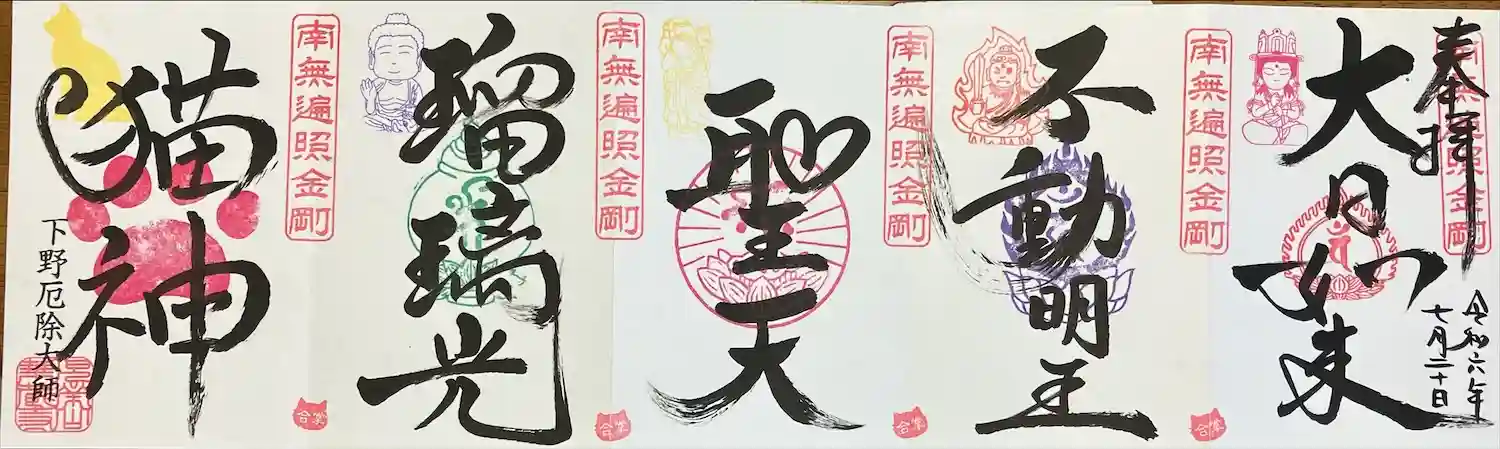 奉拝
令和六年
七月二十日
大日如来
南無遍照金剛
不動明王
南無遍照金剛
聖天
南無遍照金剛
瑠璃光
南無遍照金剛
猫神
下野厄除大師
南無遍照金剛